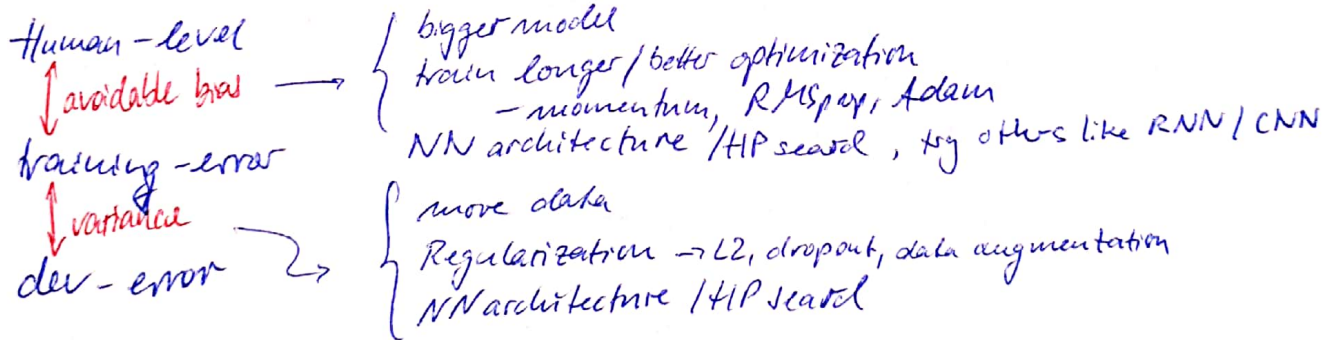 Human-level
avoidable bias
training-error
variance
dev-error
bigger model
train longer/better optimization
- momentum, RMSprop, Adam
NN architecture /HP search, try others like RNN/CNN
more data
Regularization → L2, dropout, data augmentation
NN architecture /HP search